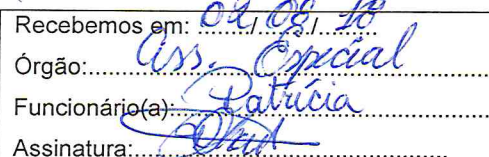 Recebemos em: 02/08/18
Órgão: Ass. Especial
Funcionário(a): Patrícia
Assinatura: